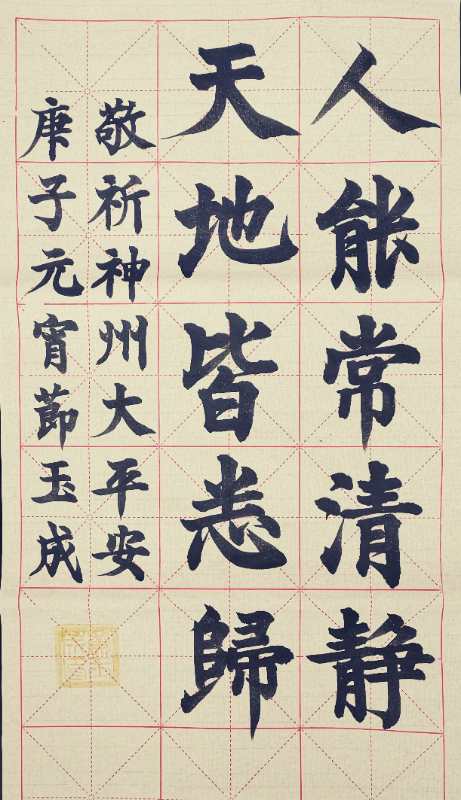 人能常清静
天地皆悉歸
敬祈神州大平安
庚子元宵節玉成